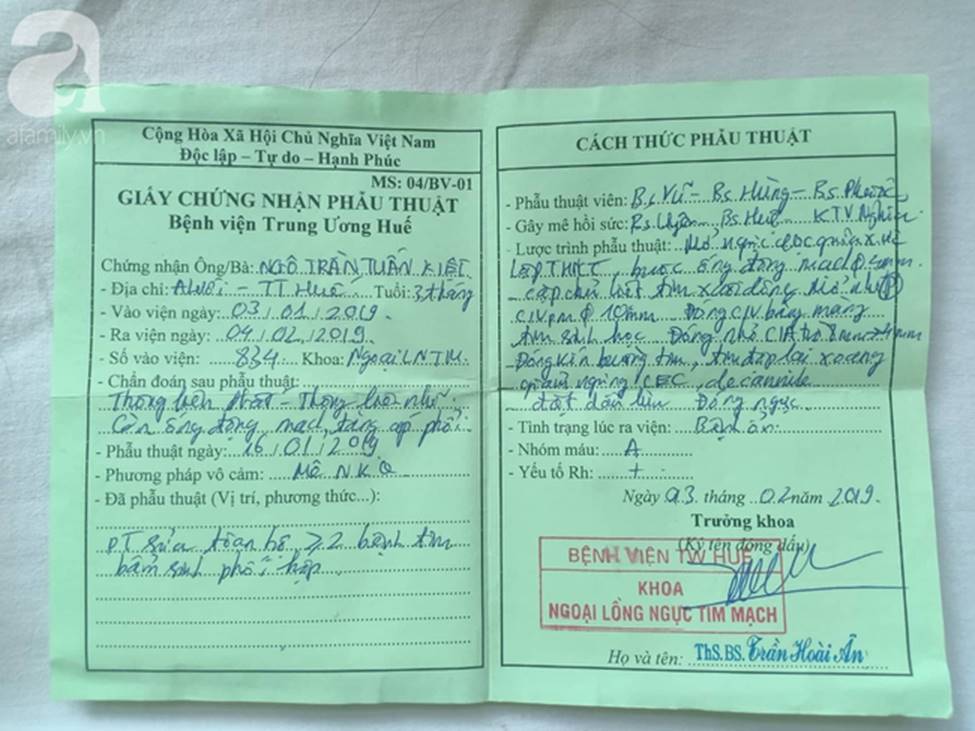 afamily.vn
Cộng Hòa Xã Hội Chủ Nghĩa Việt Nam
Độc lập – Tự do – Hạnh Phúc
MS: 04/BV-01
GIẤY CHỨNG NHẬN PHẪU THUẬT
Bệnh viện Trung Ương Huế
Chứng nhận Ông/Bà: NGÔ TRẦN TUẤN KIỆT
- Địa chỉ: A Lưới - TT Huế Tuổi: 3 tháng
- Vào viện ngày: 03/01/2019
- Ra viện ngày: 04/02/2019
- Số vào viện: 834 Khoa: Ngoại LNTM
- Chẩn đoán sau phẫu thuật:
Thông liên thất - Thông liên nhĩ
Còn ống động mạch, tăng áp phổi
- Phẫu thuật ngày: 16/01/2019
- Phương pháp vô cảm: Mê NKQ
- Đã phẫu thuật (Vị trí, phương thức...):
PT sửa toàn bộ ≥ 2 bệnh tim
bẩm sinh phối hợp
CÁCH THỨC PHẪU THUẬT
- Phẫu thuật viên: Bs Vũ - Bs Hùng - Bs Phước
- Gây mê hồi sức: Bs Bs Huế KTV
- Lược trình phẫu thuật: Mở ngực dọc giữa x. ức
Lập THNCT, buộc ống động mạch
Cặp chủ liệt tim Mở nhĩ (P)
CIV pm φ 10mm Đóng CIV bằng màng
tim sinh học Đóng nhỏ CIA từ 8mm → 4mm
Đóng kín buồng tim, tim đập lại xoang
ngừng CEC, decannule
đặt dẫn lưu Đóng ngực
- Tình trạng lúc ra viện: Bệnh ổn
- Nhóm máu: A
- Yếu tố Rh: +
Ngày 03 tháng 02 năm 2019
Trưởng khoa
(Ký tên đóng dấu)
BỆNH VIỆN TW HUẾ
KHOA
NGOẠI LỒNG NGỰC TIM MẠCH
Họ và tên: ThS.BS. Trần Hoài Ân